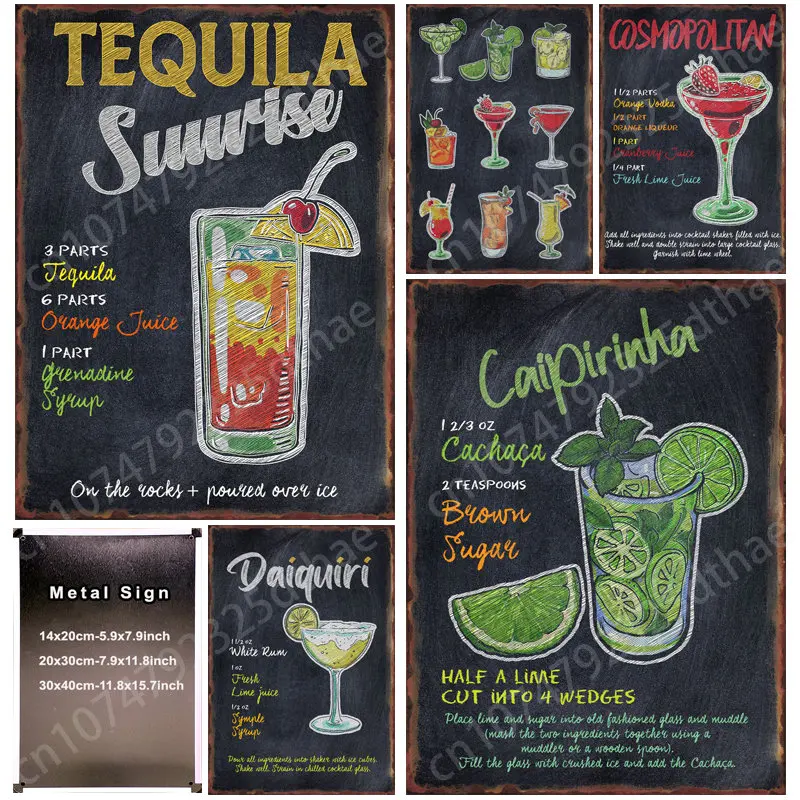 TEQUILA
Sunrise
3 PARTS
Tequila
6 PARTS
Orange Juice
1 PART
Grenadine
Syrup
On the rocks + poured over ice
COSMOPOLITAN
1 1/2 PARTS
Orange Vodka
1/2 PART
ORANGE LIQUEUR
1 PART
Cranberry Juice
1/4 PART
Fresh Lime Juice
Add all ingredients into cocktail shaker filled with ice.
Shake well and double strain into large cocktail glass.
Garnish with lime wheel.
Caipirinha
1 2/3 OZ
Cachaça
2 TEASPOONS
Brown
Sugar
HALF A LIME
CUT INTO 4 WEDGES
Place lime and sugar into old fashioned glass and muddle
(mash the two ingredients together using a
muddler or a wooden spoon).
Fill the glass with crushed ice and add the Cachaça.
Metal Sign
14x20cm-5.9x7.9inch
20x30cm-7.9x11.8inch
30x40cm-11.8x15.7inch
Daiquiri
1 1/2 OZ
White Rum
1 OZ
Fresh
Lime juice
1/2 OZ
Symple
Syrup
Pour all ingredients into shaker with ice cubes.
Shake well. Strain in chilled cocktail glass.